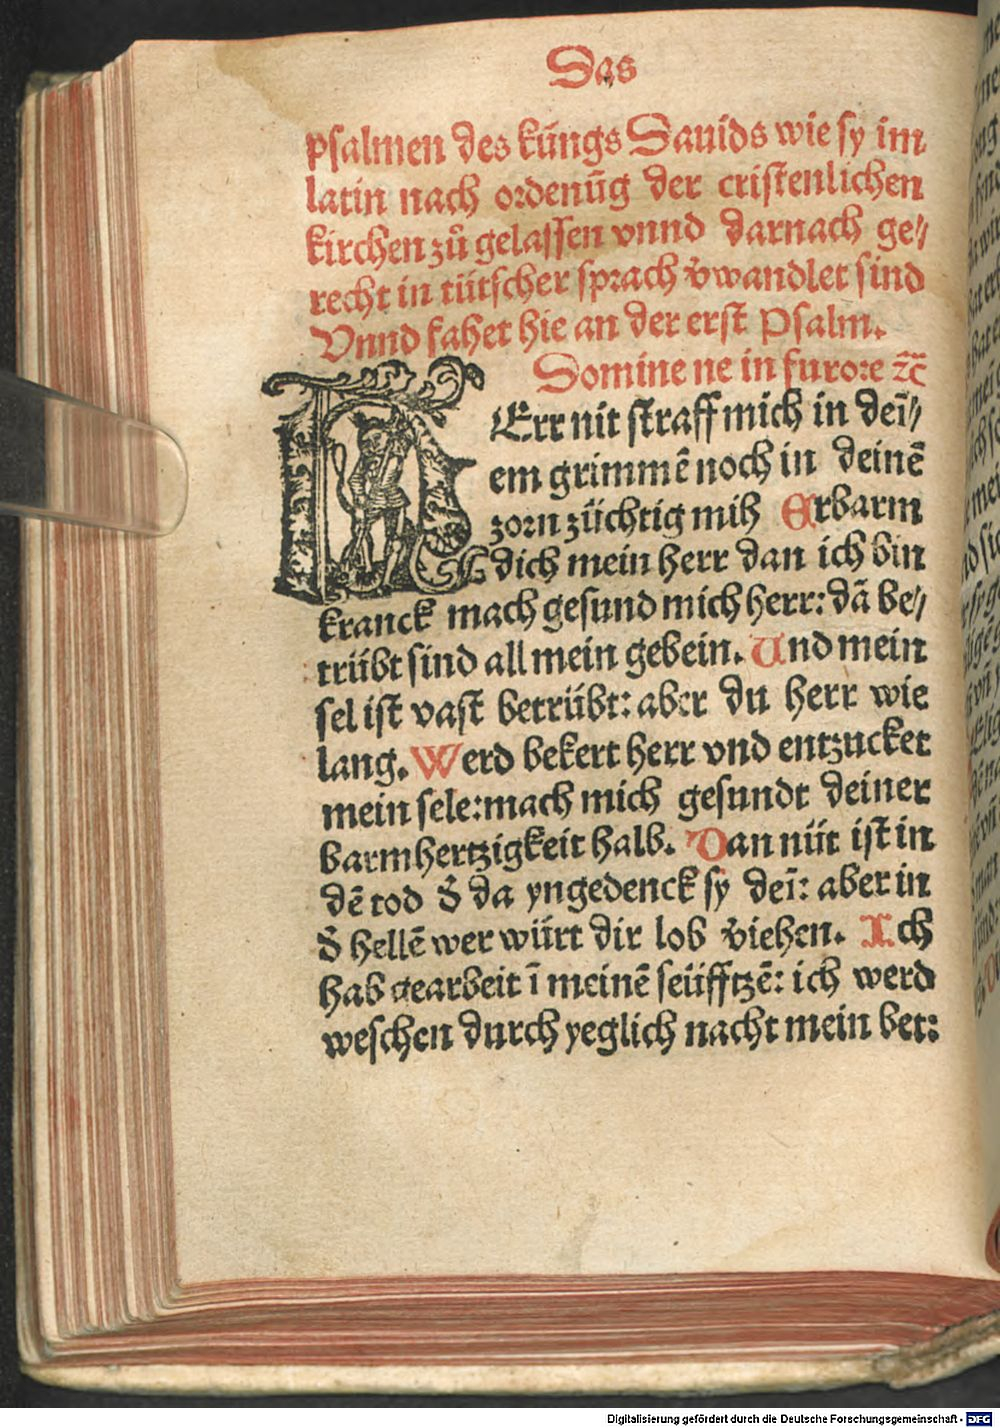 Das
psalmen des küngs Dauids wie sy im
latin nach ordenūg der cristenlichen
kirchen zů gelassen vnnd darnach ge⸗
recht in tütscher sprach v̄wandlet sind
Vnnd fahet hie an der erst Psalm.
Domine ne in furore ꝛc̄
HErr nit straff mich in deī⸗
em grimmē noch in deinē
zorn züchtig mih Erbarm
dich mein herr dan ich bin
kranck mach gesund mich herr: dā be⸗
trübt sind all mein gebein. Und mein
sel ist vast betrübt: aber du herr wie
lang. Werd bekert herr vnd entzucket
mein sele: mach mich gesundt deiner
barmhertzigkeit halb. Dan nüt ist in
dē tod d̄ da yngedenck sy deī: aber in
d̄ hellē wer würt dir lob v̄iehen. Ich
hab gearbeit ī meinē seüfftzē: ich werd
weschen durch yeglich nacht mein bet:
Digitalisierung gefördert durch die Deutsche Forschungsgemeinschaft - DFG